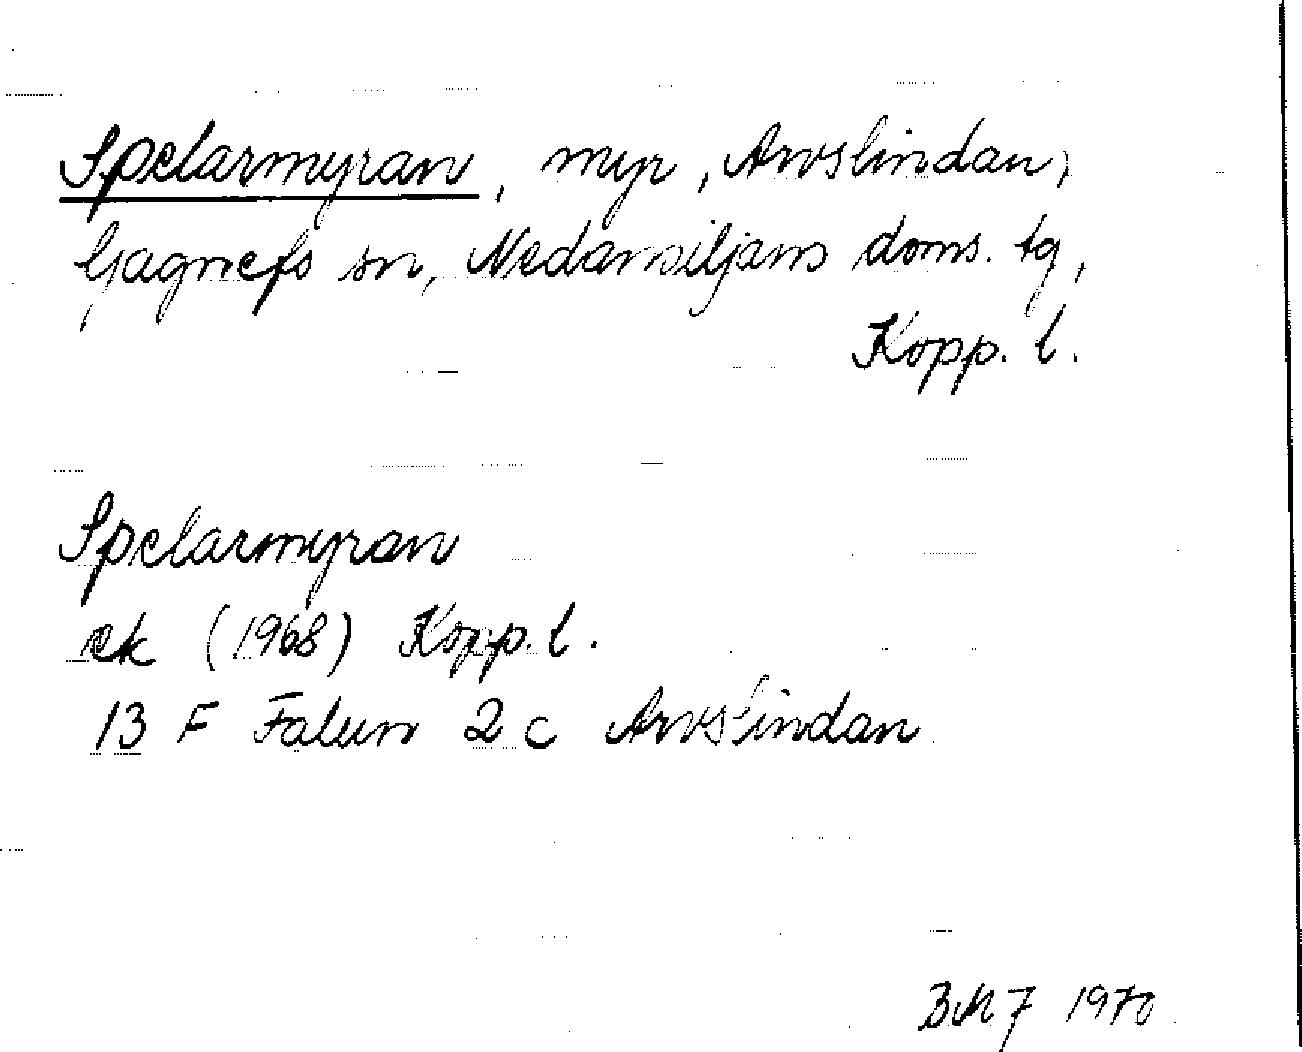 Spelarmyran, myr, Arvslindan,
Gagnefs sn, Nedansiljans doms. tg,
Kopp. l.
Spelarmyran
ek (1968) Kopp. l.
13 F Falun 2 c Arvslindan
1970